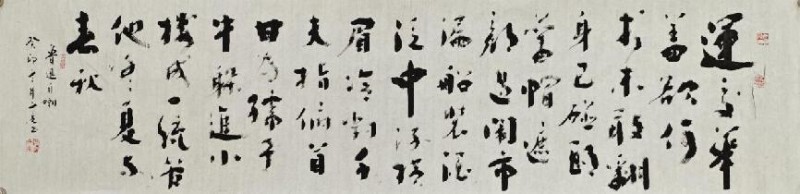 運交華
蓋欲何
求未敢翻
身已碰頭
舊帽遮
顏過鬧市
漏船載酒
泛中流横
眉冷對千
夫指俯首
甘為孺子
牛躲進小
樓成一統管
他冬夏與
春秋
魯迅自嘲
癸卯十月